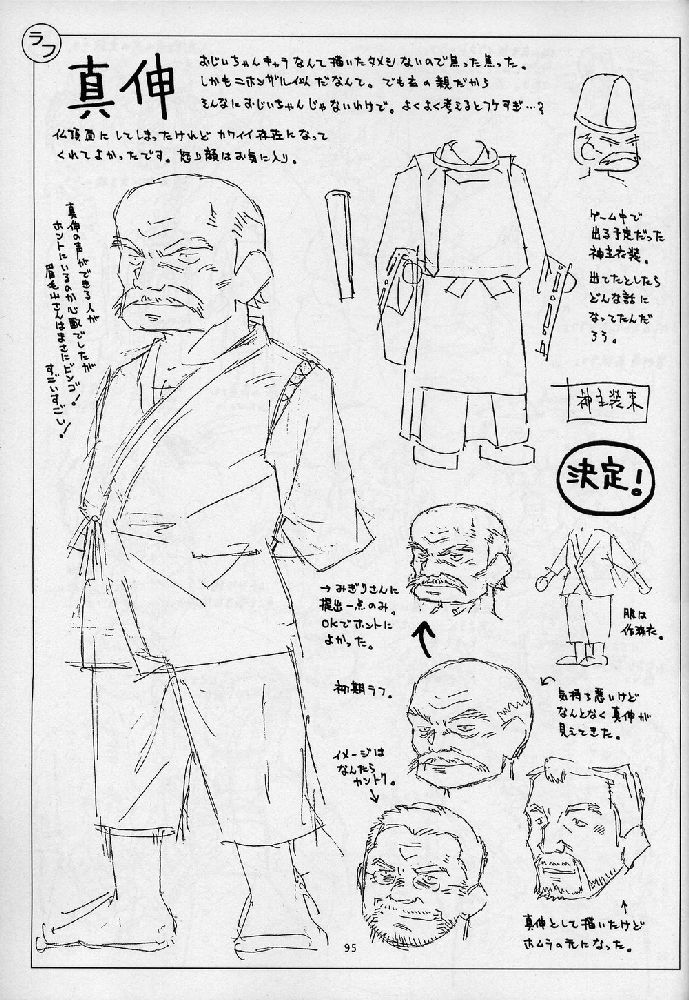 ラフ
真伸
おじいちゃんキャラなんて描いたタメシないので焦った焦った。
しかもニホンザル似だなんて。でも右の親だから
そんなにおじいちゃんじゃないわけで。よくよく考えるとフケすぎ…?
仏頂面にしてしまったけれどカワイイ存在になって
くれてよかったです。怒り顔はお気に入り。
真伸の声ができる人が
ホントにいるのか心配でしたが
さんはまさにビンゴ!
すごいすごい!
ゲーム中で
出る予定だった
神主衣装。
出てたとしたら
どんな話に
なってたんだ
ろう。
神主装束
決定!
→みぎりさんに
提出一点のみ。
OKでホントに
よかった。
服は
作務衣。
初期ラフ。
気持ち悪いけど
なんとなく真伸が
見えてきた。
イメージは
なんたら
カントリ。
真伸として描いたけど
ホムラの元になった。
95